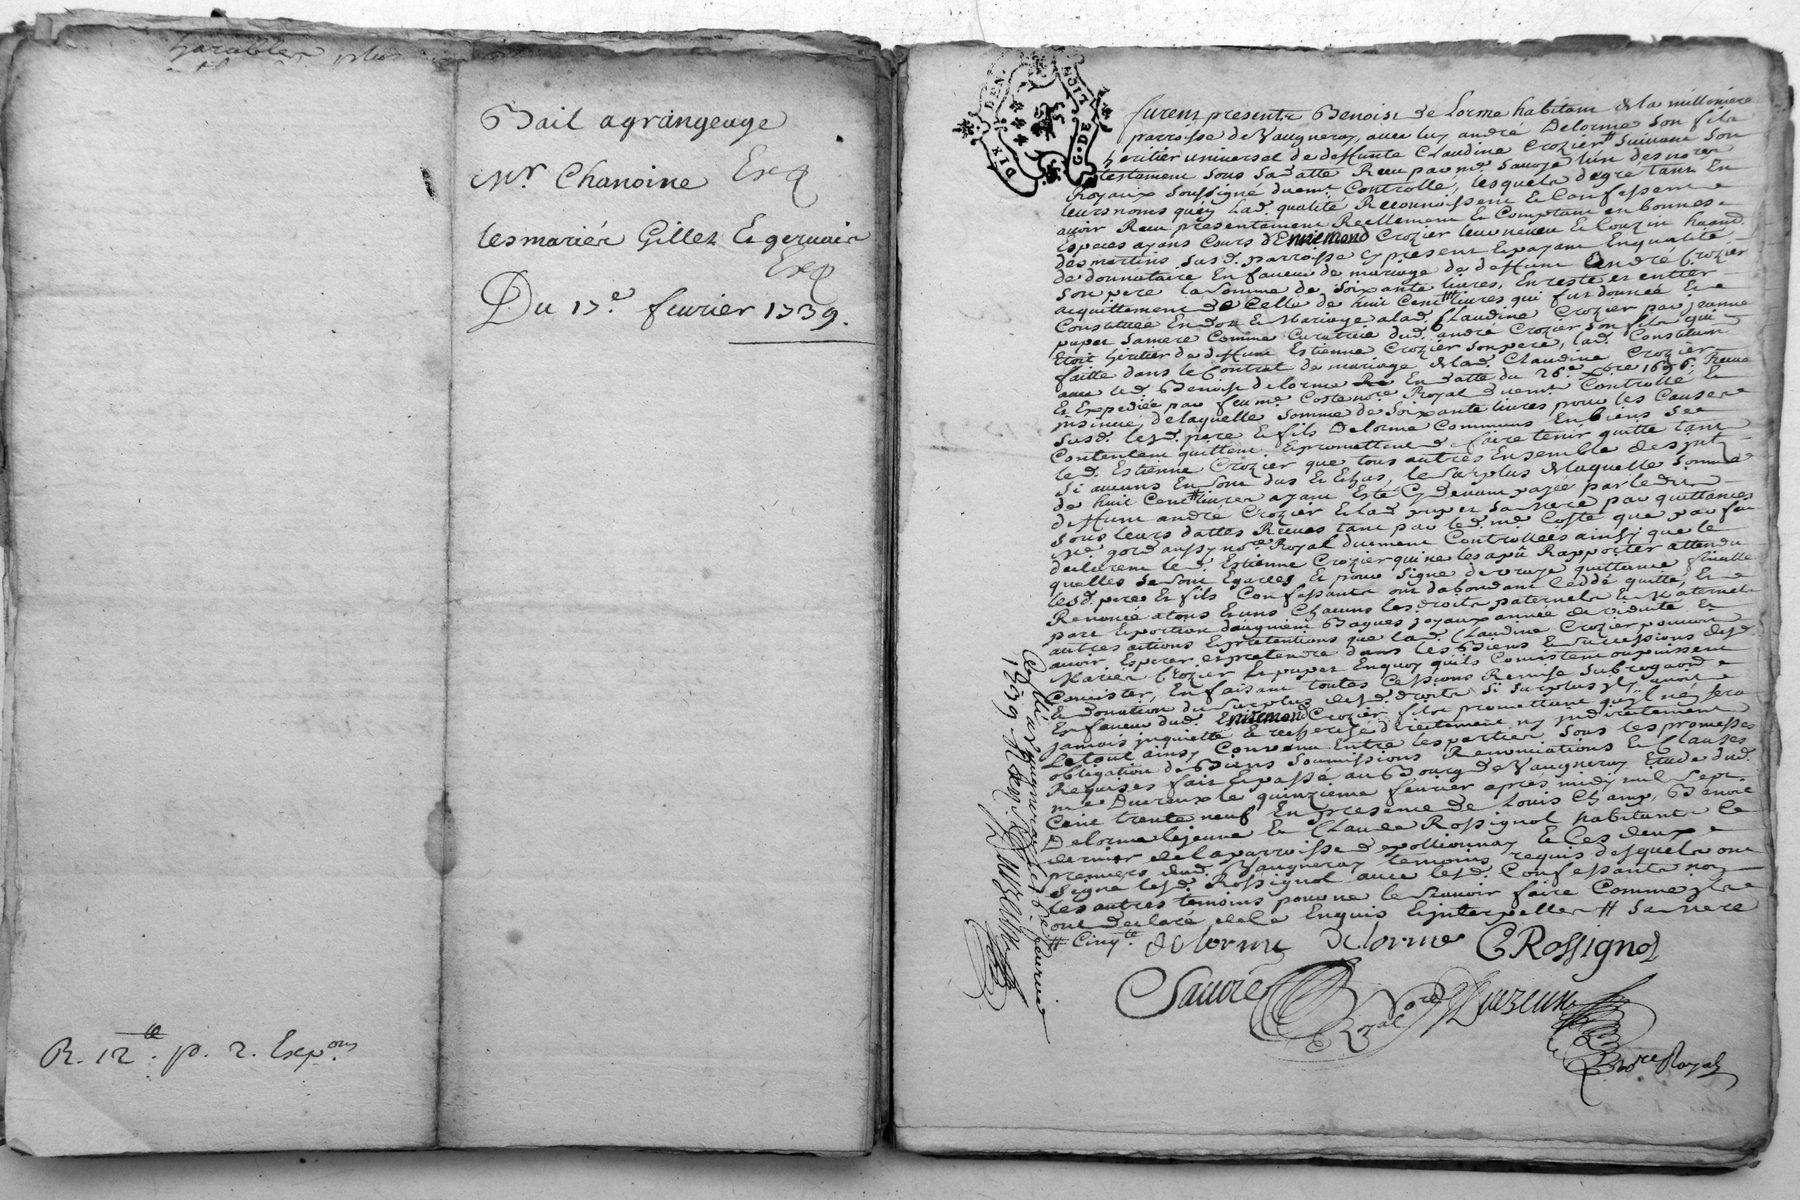 harables plus
Bail agrangeage
Mr Chanoine Exp
les mariés Gillet Et gervais
Exp
Du 17e fevrier 1739.
R. 12 tt. p. 2. Expons
DIX DEN.
G. DE LION
furent presents Benoist De lorme habitant de la milloniere
parroisse de Vaugneray, avec luy andré Delorme son fils
heritier universel de deffunte Claudine Crozier # suivant son
testament sous sa datte Receu par me. Sauvage l'un des nores
Royaux soussigné duemt. Controllé, lesquels de gré tant En
leurs noms quen Lad. qualité Reconnoissent & Confessent
avoir Receu presentement Reellement & Comptant en bonnes
Especes ayans Cours d'Ennemond Crozier leur neveu & Cousin
des martins susd. parroisse cy present Et payant En qualité
de donnataire En faveur de mariage de deffunt André Crozier
son pere la somme de soixante livres, En reste et entier
acquittement de Celle de huit Cent # livres qui fut donnée &
Constituée En dot & Mariage a lad. Claudine Crozier par jeanne
pupet sa mere Comme Curatrice dud. andré Crozier son fils qui
Etoit heritier de deffunt Estienne Crozier son pere, lad. Constitution
faitte dans le Contrat de mariage de lad. Claudine Crozier
avec led. Benoist delorme En datte du 26e xbre 1696. Receu
& Expediée par feu me Coste nore Royal duemt Controllé &
jnsinué, de laquelle somme de soixante livres pour les Causes
susd. lesd. pere & fils Delorme Communs En biens se
Contentent quittent & promettent faire tenir quitte tant
led. Estienne Crozier que tous autres Ensemble des jnts
si aucuns En sont dus & Echus, le surplus de laquelle somme
de huit Cent # livres ayant Esté Cy devant payée par ledit
deffunt andré Crozier & lad. pupet sa mere par quittances
sous leurs dattes Receues tant par led. me Coste que par feu
Me gord aussy nore Royal duement Controllées ainsy que le
declarent led. Estienne Crozier qui ne les a pû Rapporter attendu
quelles se sont Egarées, & pour signe de vraye quittance finalle
lesd. pere & fils Confessants ont d'abondant Ceddé quitté, &
Renoncé a tous & uns Chacuns les droits paternels & Maternels
part & portion d'augment Bagues joyaux année de viduité &
autres actions & pretentions que lad. Claudine Crozier pouvoit
avoir Esperer et pretendre dans les Biens & successions desd.
Mariés Crozier & pupet En quoy quils Consistent ou puissent
Consister, En faisant toutes Cessions Remise subrogation
& donation du surplus desd. droits si surplus y avoit
En faveur dud. Ennemond Crozier, et promettant qu'il ne sera
jamais jnquietté & recherché directement ny jndirectement
Le tout ainsy Convenu Entre les parties sous les promesses
obligation de Biens soumissions Renonciations & Clauses
Requises fait & passé au Bourg de Vaugneray Etude dud.
me Duvreux le quinzieme fevrier aprés midy mil sept
Cent trente neuf En presence de Louis Champ, Benoit
Delorme lejeune & Claude Rossignol habitants Ce
dernier de la parroisse de pollionnay & les deux
premiers dud. Vaugneray temoins requis desquels ont
signé lesd. Rossignol avec lesd. Confessants non
les autres temoins pour ne le scavoir faire Comme ils
ont declaré de ce Enquis & jnterpellés # sa mere
# Cinqte. delorme delorme C Rossignol
nore Royal
nore Royal
Collé a Vaugneray le fevrier
1739